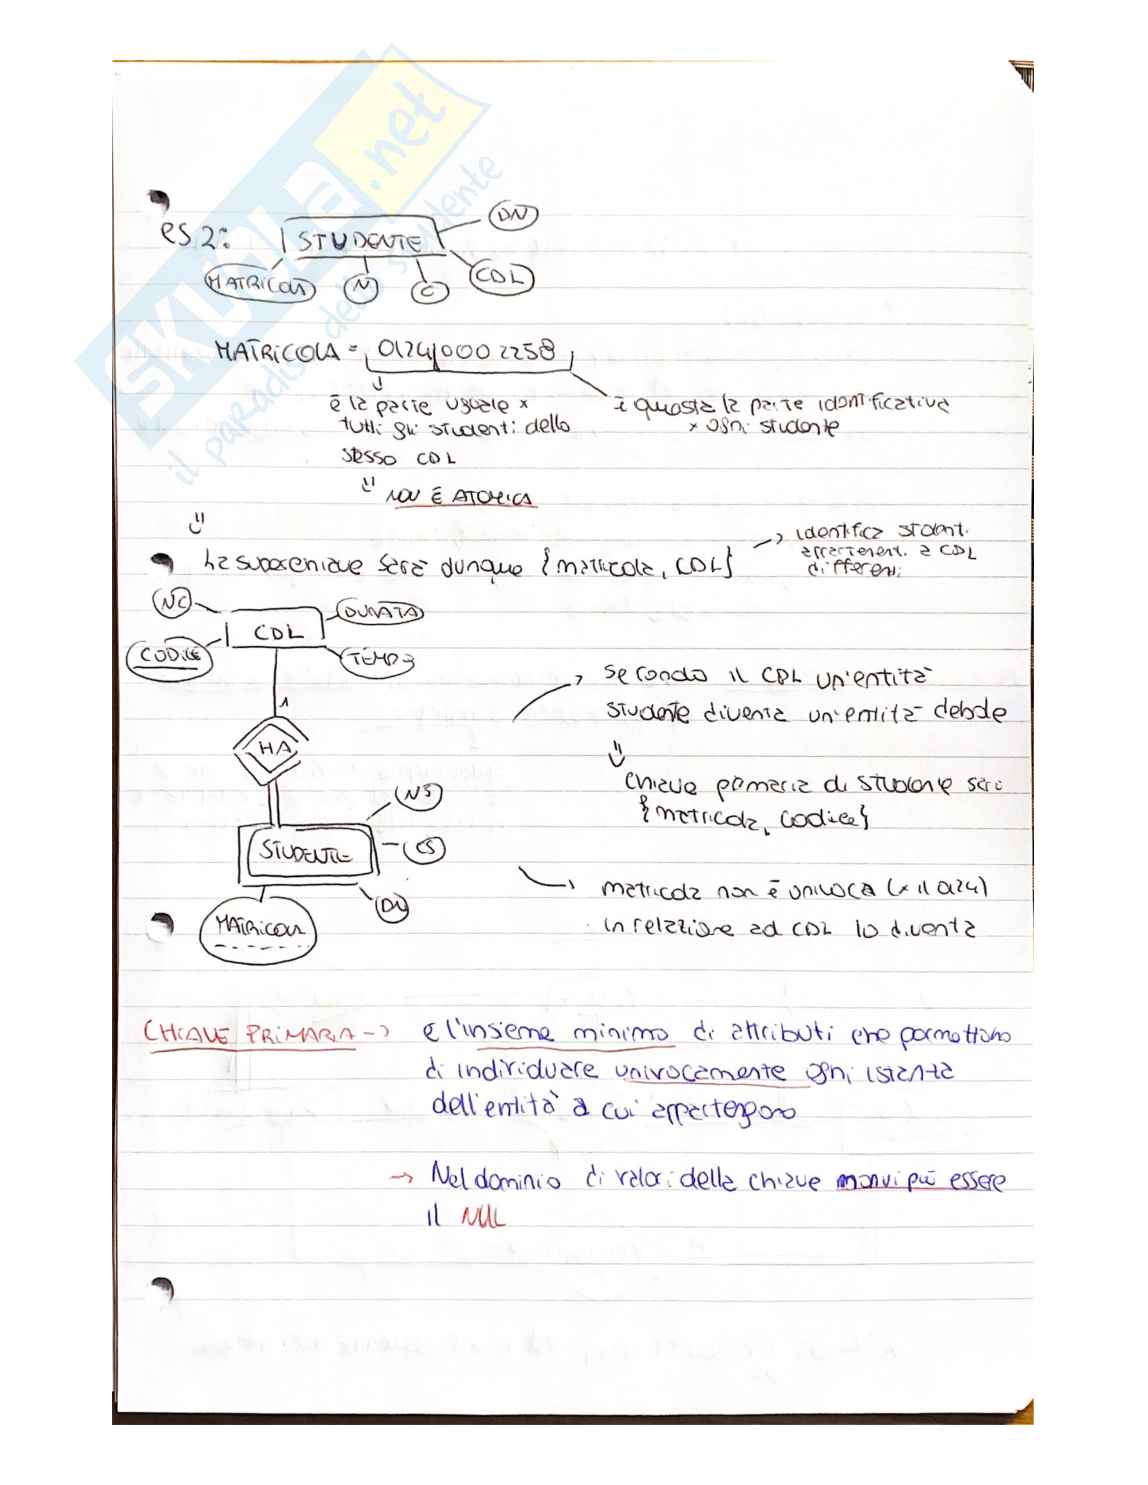 SKUOLA.net
il paradiso dello studente
es 2:
STUDENTE
DN
MATRICOLA
N
C
CDL
MATRICOLA = 0124 000 2258
è la parte uguale x
tutti gli studenti dello
stesso CDL
è questa la parte identificativa
x ogni studente
NON È ATOMICA
la superchiave sarà dunque {matricola, CDL}
identifica student.
appartenent. a CDL
differen.
NC
DURATA
CDL
CODICE
1
HA
NS
STUDENTE
CS
MATRICOLA
Secondo il CDL un'entità
studente diventa un'entità debole
chiave primaria di studente sarà
{matricola, codice}
matricola non è univoca (x il 0124)
in relazione ad CDL lo diventa
CHIAVE PRIMARIA -> è l'insieme minimo di attributi che permettono
di individuare univocamente ogni istanza
dell'entità a cui appartengono
-> Nel dominio di valori della chiave non vi può essere
il NULL